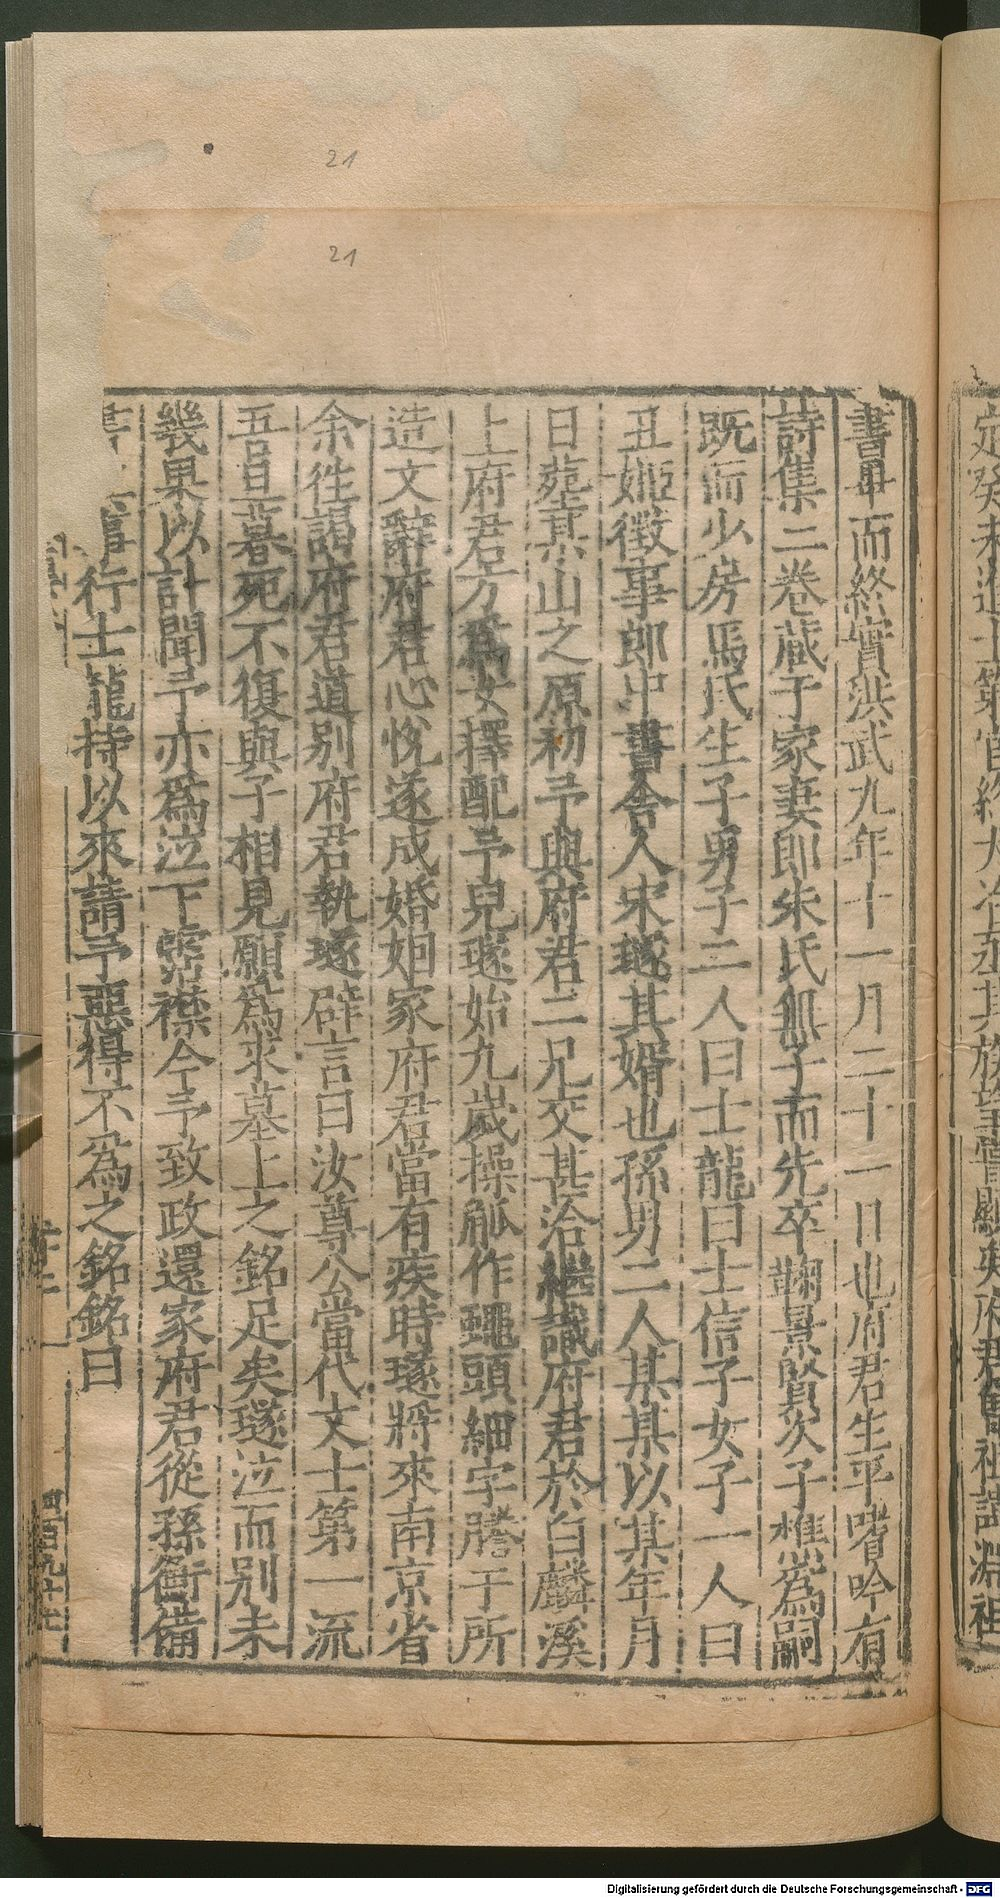 21
21
書畢而終實洪武九年十一月二十一日也府君生平嗜吟有
詩集二卷藏于家妻即朱氏無子而先卒鞠景賢次子樵爲嗣
既而少房馬氏生子男子二人曰士龍曰士信子女子一人曰
丑姬徵事郎中書舍人宋璲其婿也孫男二人某某以某年月
日葬某山之原初予與府君二兄交甚洽繼識府君於白麟溪
上府君方爲女擇配予兒璲始九歲操觚作蠅頭細字謄于所
造文辭府君心悅遂成婚姻家府君當有疾時璲將來南京省
余徃謁府君道別府君執璲辟言曰汝尊公當代文士第一流
吾旦暮死不復與子相見願爲求墓上之銘足矣璲泣而別未
幾果以訃聞予亦爲泣下霑襟今予致政還家府君從孫衡備
書事行士龍持以來請予惡得不爲之銘銘曰
四百九十七
定癸未進士第官終大冶丞其族望嘗顯矣府君曾祖諱淵祖
Digitalisierung gefördert durch die Deutsche Forschungsgemeinschaft - DFG